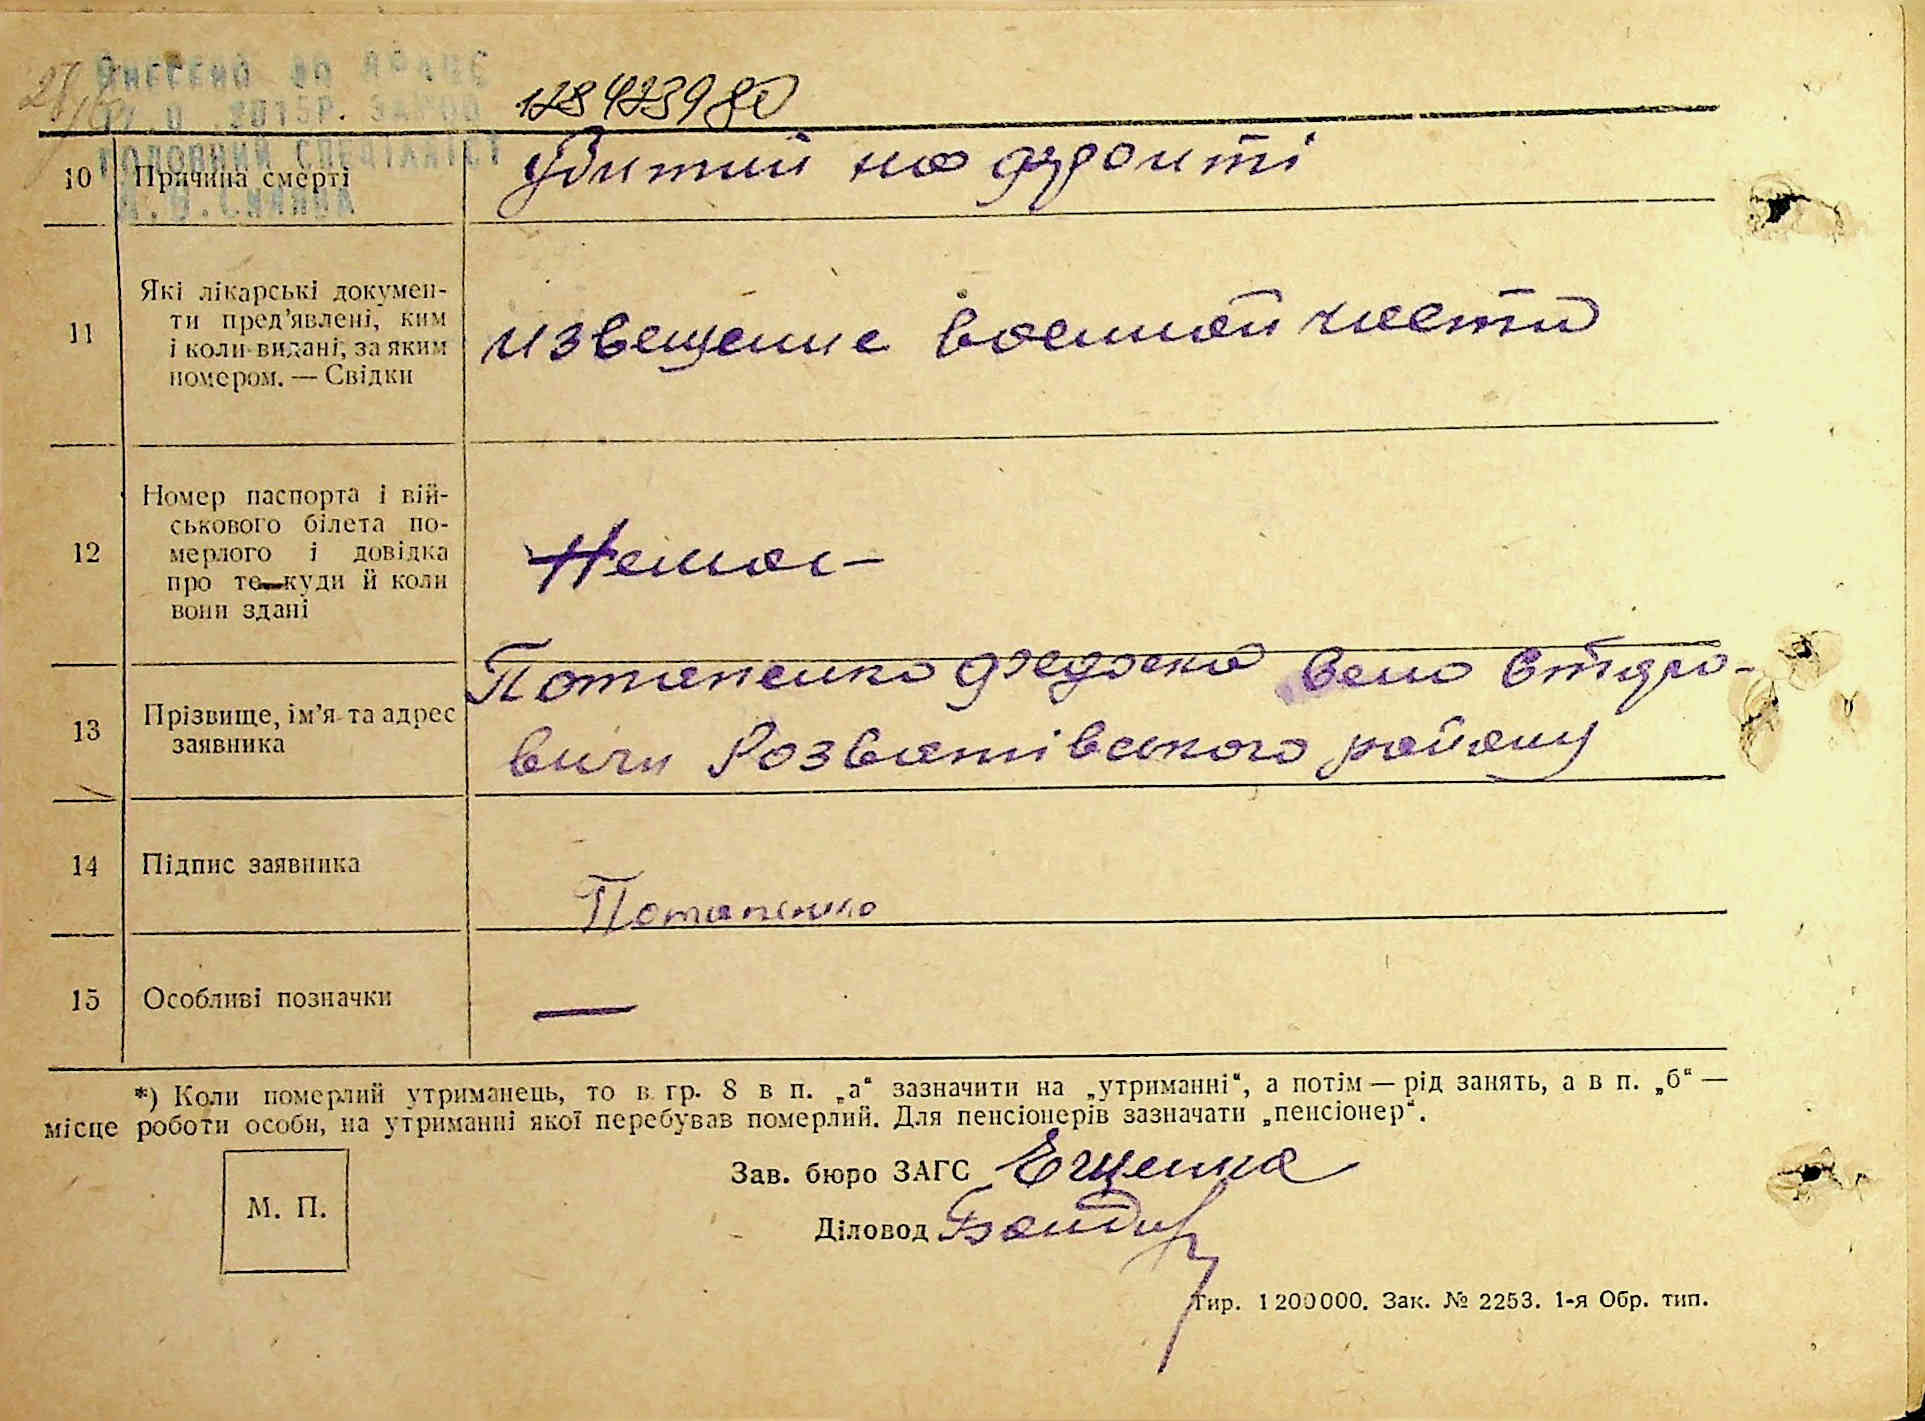 Внесено до ДРАЦС
2015р.
128423980
головний спеціаліст
10 Причина смерті Убитий на фронті
11 Які лікарські докумен-
ти пред'явлені, ким
і коли видані, за яким
номером. — Свідки
извещение военной части
12 Номер паспорта і вій-
ськового білета по-
мерлого і довідка
про те куди й коли
вони здані
Немає
13 Прізвище, ім'я та адрес
заявника
Потапенко Федоска село
вичи Розватівського району
14 Підпис заявника
Потапенко
15 Особливі позначки —
*) Коли померлий утриманець, то в гр. 8 в п. „а“ зазначити на „утриманні“, а потім — рід занять, а в п. „б“ —
місце роботи особи, на утриманні якої перебував померлий. Для пенсіонерів зазначати „пенсіонер“.
Зав. бюро ЗАГС Ещенко
М. П.
Діловод
Тир. 1200000. Зак. № 2253. 1-я Обр. тип.